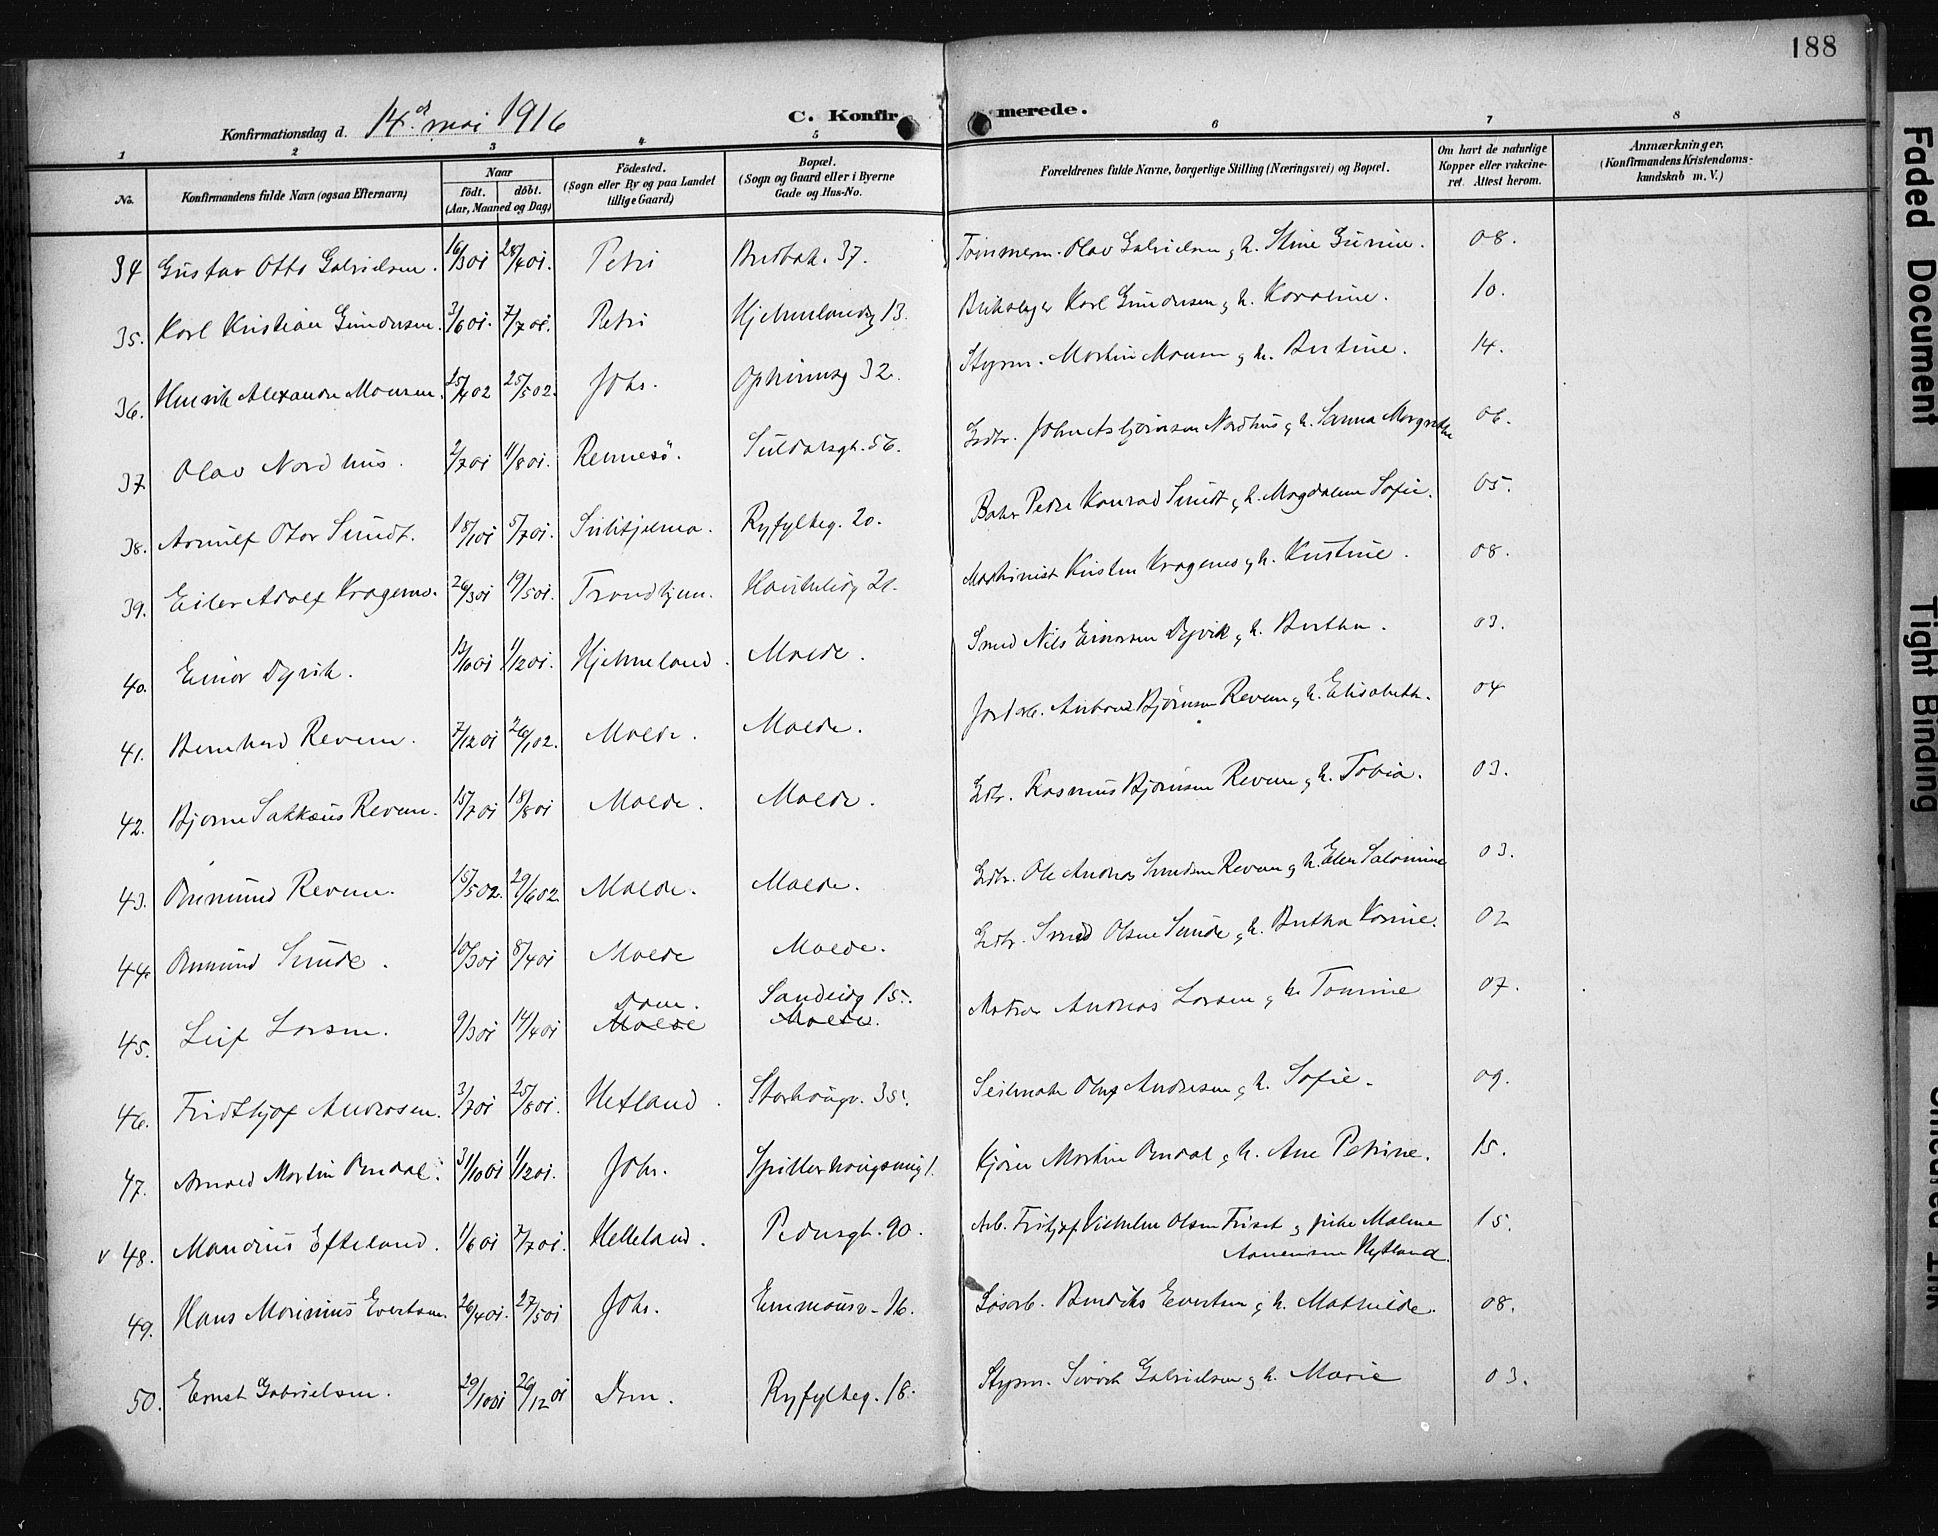 188
Konfirmationsdag d. 14de mai 1916
C. Konfirmerede.
1 2 3 4 5 6 7 8
No. Konfirmandens fulde Navn (ogsaa Efternavn) Naar født. døbt. (Aar, Maaned og Dag) Födested. (Sogn eller By og paa Landet tillige Gaard) Bopæl. (Sogn og Gaard eller i Byerne Gade og Hus-No. Forældrenes fulde Navne, borgerlige Stilling (Næringsvei) og Bopæl. Om havt de naturlige Kopper eller vakcineret. Attest herom. Anmærkninger. (Konfirmandens Kristendomskundskab m. V.)
34 Gustav Otto Gabrielsen. 16/3 01 28/4 01. Petri Bredbak. 37. Tømmerm. Olav Gabrielsen g h. Stine Gurine. 08.
35. Karl Kristian Gundersen. 3/6 01. 7/7 01. Petri Hjelmelandsg 13. Karl Gundersen g h. Karoline. 10.
36. Henrik Alexander Monsen. 25/4 02 25/5 02. Johs. 32. Styrm. Martin Monsen g h. Bertine. 14.
37. Olav Nordhus. 2/7 01 11/8 01. Rennesö. Suldalsgt. 56. Gdbr. John Asbjørnsen Nordhus g h. Sanna Margrethe 06.
38. Arnulf Otar Sundt. 18/1 01 5/7 01. Sulitjelma. Ryfylkeg. 20. Baker Peder Konrad Sundt g h. Magdalene Sofie. 05.
39. Eiler Adolf Kragenes. 26/3 01 19/5 01. Trondhjem. Haukeligt 21. Maskinist Kristen Kragenes g h. Kristine. 08.
40. Einar Dyvik. 13/10 01 1/12 01. Hjelmeland. Malde. Smed Nils Einarsen Dyvik g h. Bertha. 03.
41. Bernhard Revem. 7/12 01 26/1 02. Malde. Malde. Jordarb. Bjørnsen Revem g h. Elisabeth. 04
42. Bjarne Sakkæus Revem. 15/7 01 18/8 01 Malde. Malde. Gdbr. Rasmus Bjørnsen Revem g h. Tobia. 03.
43. Revem. 15/5 02. 29/6 02. Malde. Malde. Gdbr. Ole Andreas Revem g h. Elen Salomine 03.
44. Sunde. 10/3 01 8/4 01 Malde Malde. Gdbr. Olsen Sunde g h. Bertha Karine. 02
Dom. Sandeidg 15.
45. Leif Larsen. 9/3 01 14/4 01 Malde Malde. Matros Andreas Larsen g h. Tomine 07.
46. Fridthjof Andersen. 3/7 01 25/8 01. Hetland. Storhaugv. 35. Seilmaker Oluf Andersen g h. Sofie. 09.
47. Arnold Martin 31/10 01 1/12 01. Johs. 1. Kjører Martin g h. Ane Petrine. 15.
v 48. Mandius Efteland. 1/6 01 7/7 01. Helleland. Pedersgt. 90. Arb. Fritjof Vilhelm Olsen g pike Malene 15.
49. Hans Marinius Evertsen. 26/4 01. 27/5 01 Johs. Emmausv. 16. Løsarb. Bendiks Evertsen g h. Mathilde. 08.
50. Ernst Gabrielsen. 29/10 01 26/12 01 Dom. Ryfylkeg. 18. Styrm. Gabrielsen g h. Marie 03.
Faded Document
Tight Binding